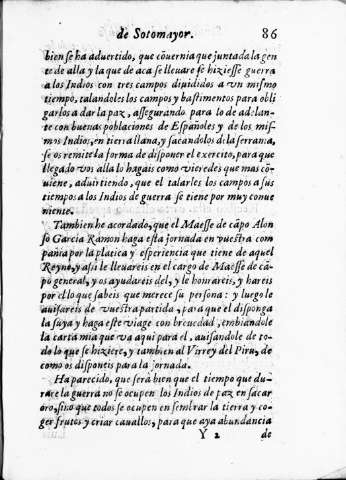 de Sotomayor. 86
bien se ha aduertido, que cõuernia que juntada la gen
te de alla y la que de aca se lleuare se hiziesse guerra
a los Indios con tres campos diuididos a vn mismo
tiempo, talandoles los campos y bastimentos para obli
garlos a dar la paz, assegurando para lo de adelan-
te con buenas poblaciones de Españoles y de los mis-
mos Indios, en tierra llana, y sacandolos dela serrania,
se os remite la forma de disponer el exercito, para que
llegado vos alla lo hagais como vieredes que mas cõ-
uiene, aduirtiendo, que el talarles los campos a sus
tiempos a los Indios de guerra se tiene por muy conue
niente.
Tambien he acordado, que el Maesse de cãpo Alon
so Garcia Ramon haga esta jornada en vuestra com
pañia por la platica y esperiencia que tiene de aquel
Reyno, y assi le lleuareis en el cargo de Maesse de cã-
po general, y os ayudareis del, y le honrareis, y hareis
por el lo que sabeis que merece su persona: y luego le
auisareis de vuestra partida, para que el disponga
la suya y haga este viage con breuedad, embiandole
la carta mia que va aqui para el, auisandole de to-
do lo que se hiziere, y tambien al Virrey del Piru, de
como os disponeis para la jornada.
Ha parecido, que serà bien que el tiempo que du-
race la guerra no se ocupen los Indios de paz en sacar
oro, sino que todos se ocupen en sembrar la tierra y co-
ger frutos y criar cauallos, para que aya abundancia
Y 2 de